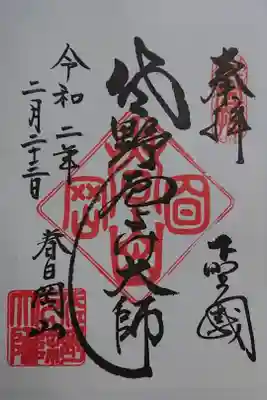 奉拝
下野國
佐野厄除大師
令和二年
二月二十三日
春日岡山